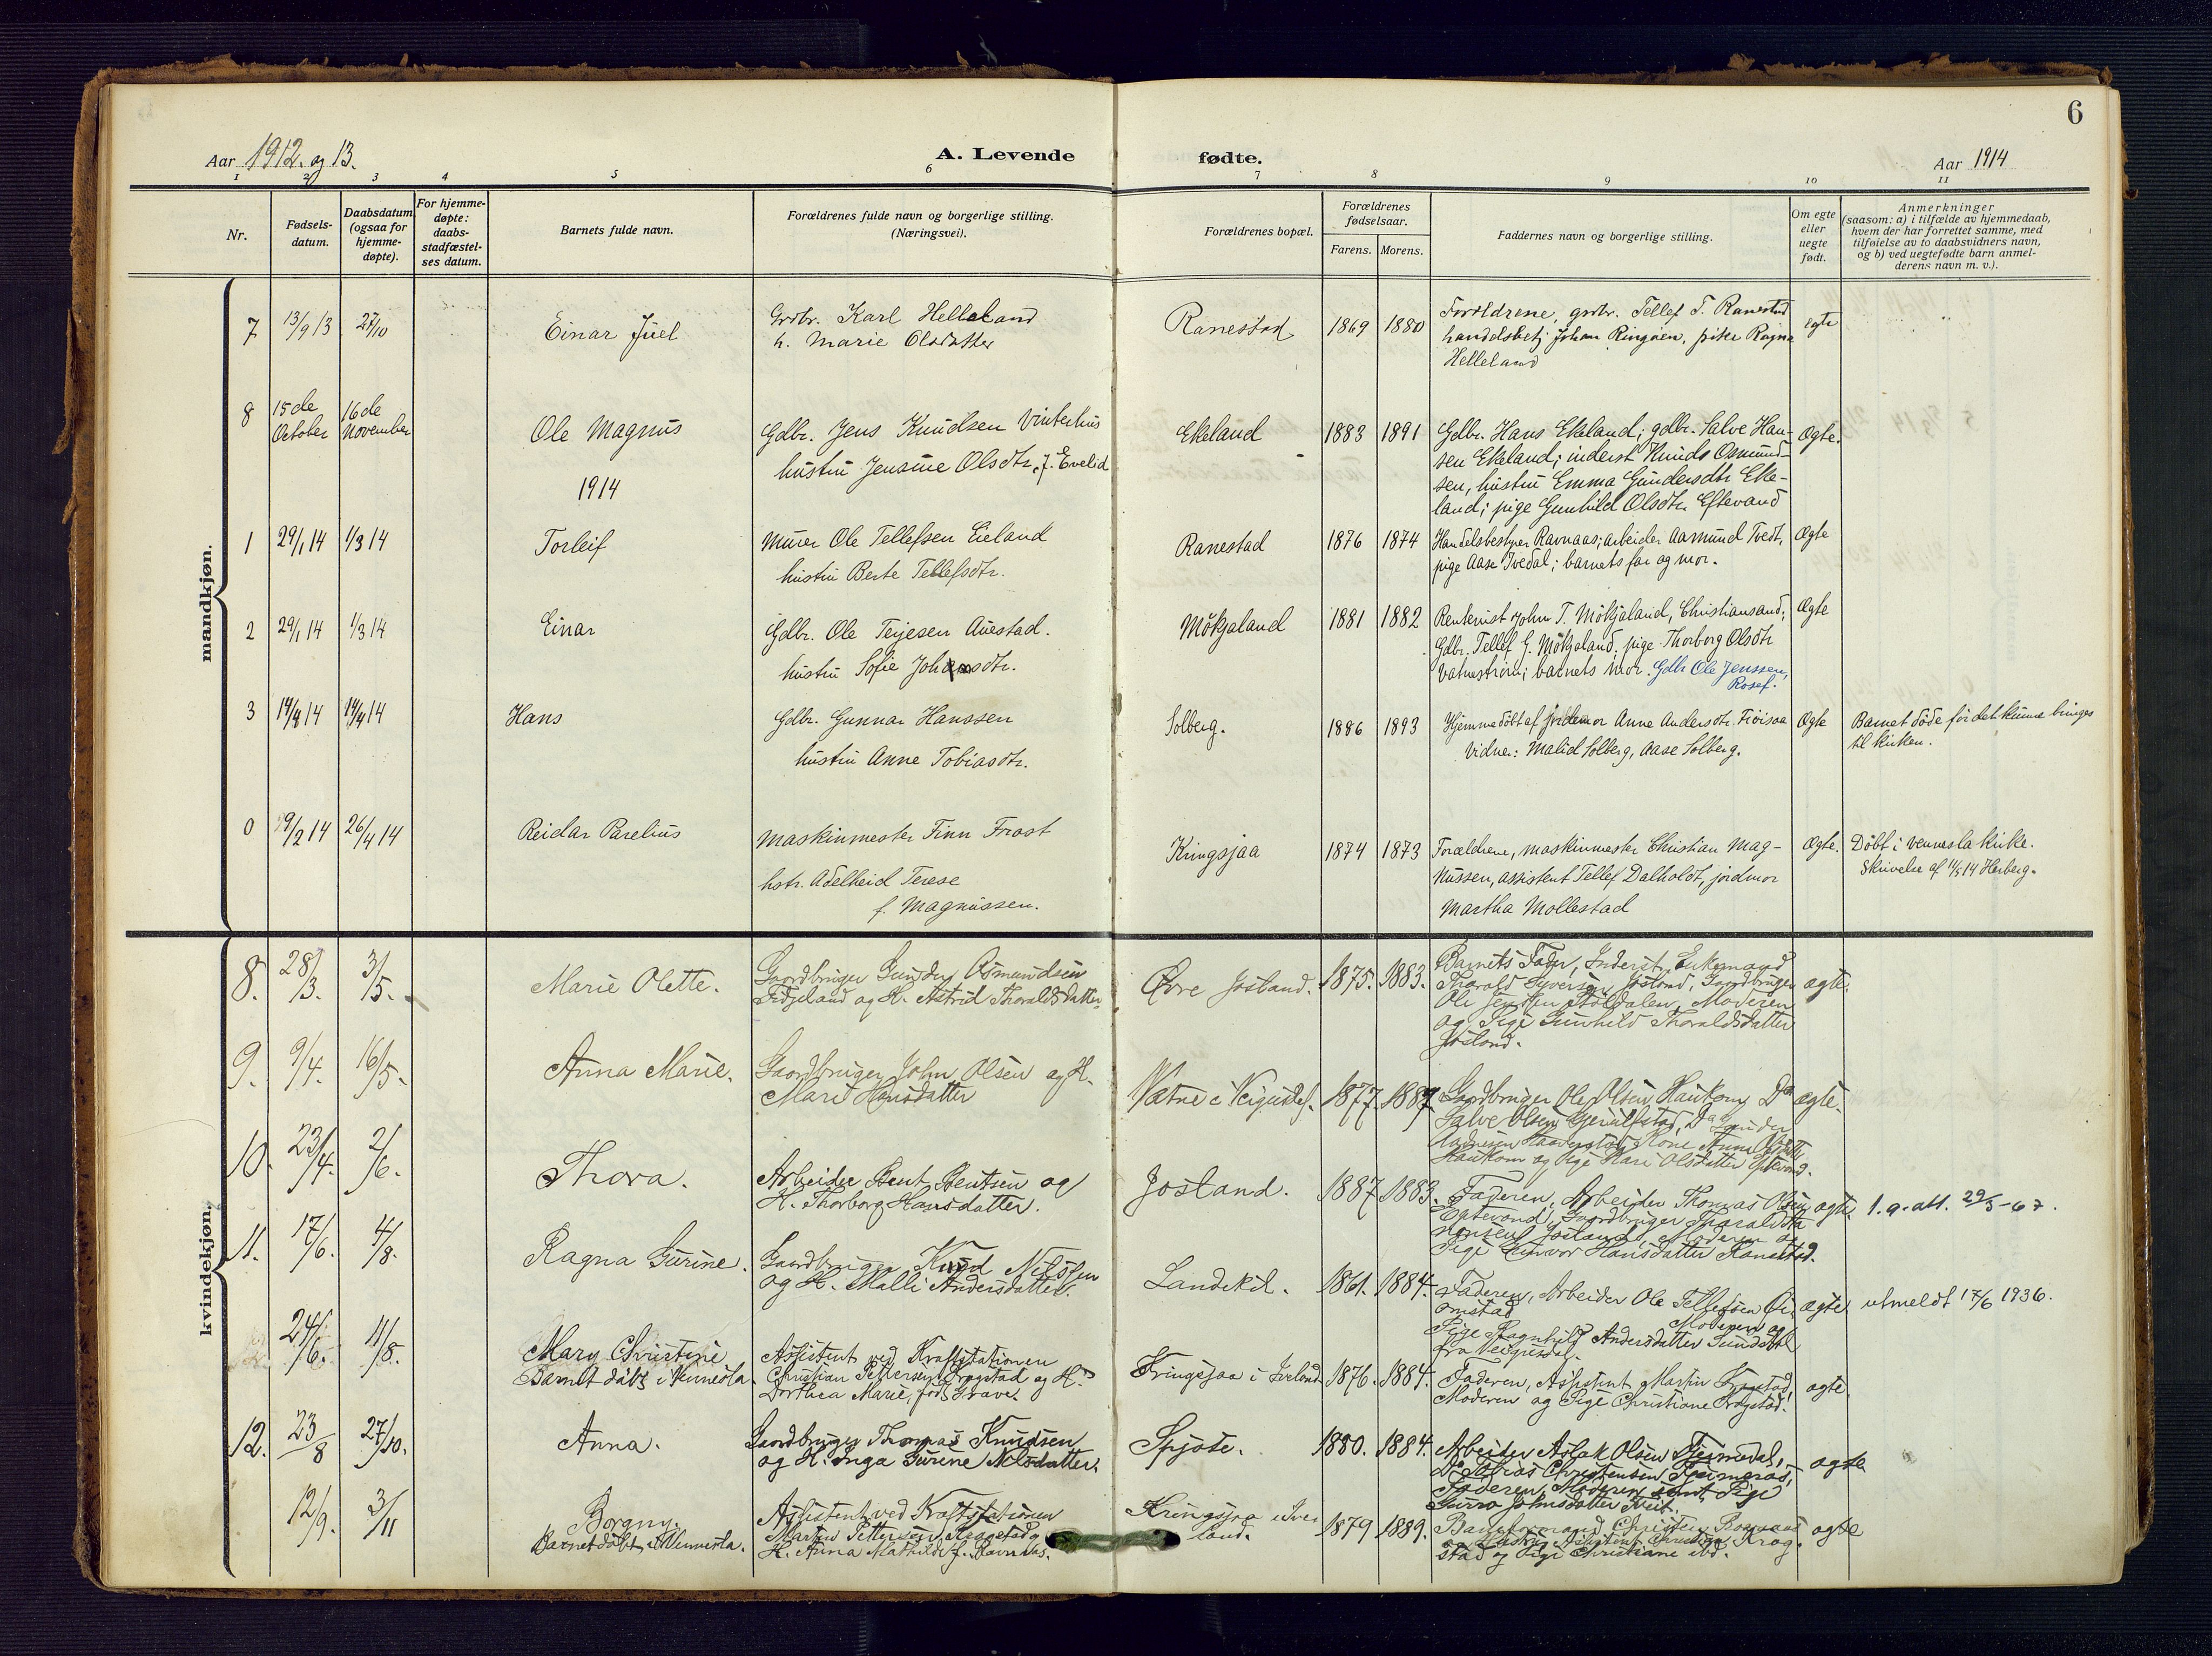 6
Aar 1912. og 13.
A. Levende fødte.
Aar 1914
1 2 3 4 5 6 7 8 9 10 11
Nr.
Fødsels-
datum.
Daabsdatum
(ogsaa for
hjemme-
døpte).
For hjemme-
døpte:
daabs-
stadfæstel-
ses datum.
Barnets fulde navn.
Forældrenes fulde navn og borgerlige stilling.
(Næringsvei).
Forældrenes bopæl.
Forældrenes
fødselsaar.
Farens. Morens.
Faddernes navn og borgerlige stilling.
Om egte
eller
uegte
født.
Anmerkninger
(saasom: a) i tilfælde av hjemmedaab,
hvem der har forrettet samme, med
tilføielse av to daabsvidners navn,
og b) ved uegtefødte barn anmel-
derens navn m. v.).
mandkjøn.
7 13/9 13 27/10 Einar Juel
Grdbr. Karl Helleland
h. Marie Olsdatter
Ranestad 1869 1880
Forældrene, grdbr. Tellef T. Ranestad
handelsbetj. Johan Ringøen, pike Ragna
Helleland
egte
8 15de October 16de November Ole Magnus
Gdbr. Jens Knudsen Vinterhus
hustru Jensine Olsdtr. f. Evelid
Ekeland 1883 1891
Gdbr. Hans Ekeland; gdbr. Salve Han-
sen Ekeland; inderst Knuds Osmund-
sen, hustru Emma Gundersdtr Eke-
land; pige Gunhild Olsdtr. Eftevand
Ægte.
1914
1 29/1 14 1/3 14 Torleif
Murer Ole Tellefsen Eieland
hustru Berte Tellefsdtr.
Ranestad 1876 1874
Handelsbestyrer Ravnaas; arbeider Aamund Tvedt,
pige Aase Ivedal; barnets far og mor.
Ægte
2 29/1 14 1/3 14 Einar
Gdbr. Ole Terjesen Auestad.
hustru Sofie Johansdtr.
Mökjaland 1881 1882
Rentenist John T. Mökjaland, Christiansand;
Gdbr. Tellef G. Mökjaland; pige Thorborg Olsdtr
Vatnestrøm; barnets mor. Gdbr Ole Jenssen,
Rosef.
Ægte
3 14/4 14 14/4 14 Hans
Gdbr. Gunnar Hanssen
hustru Anne Tobiasdtr.
Solberg. 1886 1893
Hjemmedöbt af jordemor Anne Andersdtr. Frøisaa
Vidner: Malid Solberg, Aase Solberg.
Ægte
Barnet döde för det kunne bringes
til kirken.
0 29/2 14 26/4 14 Reidar Parelius
Maskinmester Finn Frost
hstr. Adelheid Terese
f. Magnussen.
Kringsjaa 1874 1873
Forældrene, maskinmester Christian Mag-
nussen, assistent Tellef Dalholdt, jordmor
Martha Mollestad
Ægte.
Döbt i Vennesla kirke.
Skrivelse af 11/5 14 Herberg.
kvindekjøn.
8. 28/3. 3/5. Marie Olette.
Gaardbruger Gunder Osmundsen
Fidjeland og H. Astrid Thoraldsdatter
Øvre Josland. 1875. 1883.
Barnets Fader, Inderst, Enkemand
Thorald Syversen Josland, Gaardbruger
Ole Jensen Støldalen, Moderen
og Pige Gunhild Thoraldsdatter
Josland.
ægte.
9. 9/4. 16/5. Anna Marie.
Gaardbruger John Olsen og H.
Mari Hansdatter
Vatne i Vegusdal. 1877. 1887.
Gaardbruger Ole Olsen Haukom, Do
Salve Olsen Gjerulfstad, Do Gunder
Haukom og Pige Kari Olsdatter Eptevand.
ægte.
10. 23/4. 2/6. Thora.
Arbeider Bent Bentsen og
H. Thorborg Hansdatter.
Josland. 1887 1883.
Faderen, Arbeider Thomas Olsen
Eptevand, Gaardbruger
Josland, Moderen og
Pige Gunvor Hansdatter Ranestad.
ægte.
l. a. att. 29/5 - 67.
11. 17/6. 4/8. Ragna Gurine.
Gaardbruger Knud Nilssen
og H. Malli Andersdatter.
Landekil. 1861. 1884.
Faderen, Arbeider Ole Tellefsen Øi-
omstad, Moderen og
Pige Ragnhild Andersdatter Sundsdal
fra Vegusdal.
ægte.
utmeldt 17/6 1936.
24/6. 11/8. Mary Christine
Barnet døbt i Vennesla.
Assistent ved Kraftstationen
Christian Pettersen Krogstad og H.
Dorthea Marie, född Grave.
Kringsjaa i Iveland 1876. 1884.
Faderen, Assistent Martin Krogstad,
Moderen og Pige Christiane Krogstad.
ægte.
12. 23/8 27/10. Anna.
Gaardbruger Thomas Knudsen
og H. Inga Gurine Nilsdatter.
Spjote. 1880. 1884.
Arbeider Aslak Olsen Tjeimsdal,
Do Tobias Christensen Tjeimeraas,
Faderen, Moderen samt Pige
Gurro Johnsdatter Tveit.
ægte
12/9. 3/11 Borgny.
Barnet döbt i Vennesla.
Assistent ved Kraftstationen
Martin Pettersen Krogstad og
H. Anna Mathilde f. Ravnaas.
Kringsjaa i Ive-
land. 1879 1889.
Hustru, Assistent Christian Krog-
stad og Pige Christiane ibd.
ægte